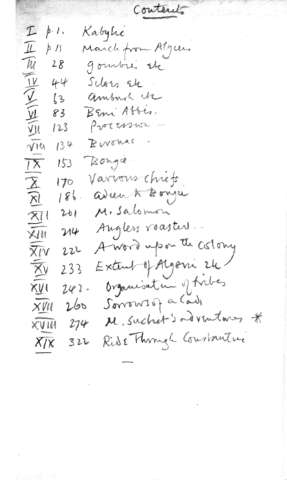 Contents
I p.1. Kabylie
II p.11 March from Algiers
III 28 Gourbies etc
IV 44 Silos etc
V 63 Ambush etc
VI 83 Beni Abbis.
VII 123 Procession
VIII 134 Bivouac
IX 153 Bougie
X 170 Various chiefs
XI 186. to Bougie
XII 201 M. Salomon
XIII 214 roasters
XIV 222 A word upon the Colony
XV 233 Extent of Algeria etc
XVI 242. Organisation of tribes
XVII 260 Sorrows of a Caid
XVIII 274 M. Suchet's adventures *
XIX 322 Ride Through Constantine